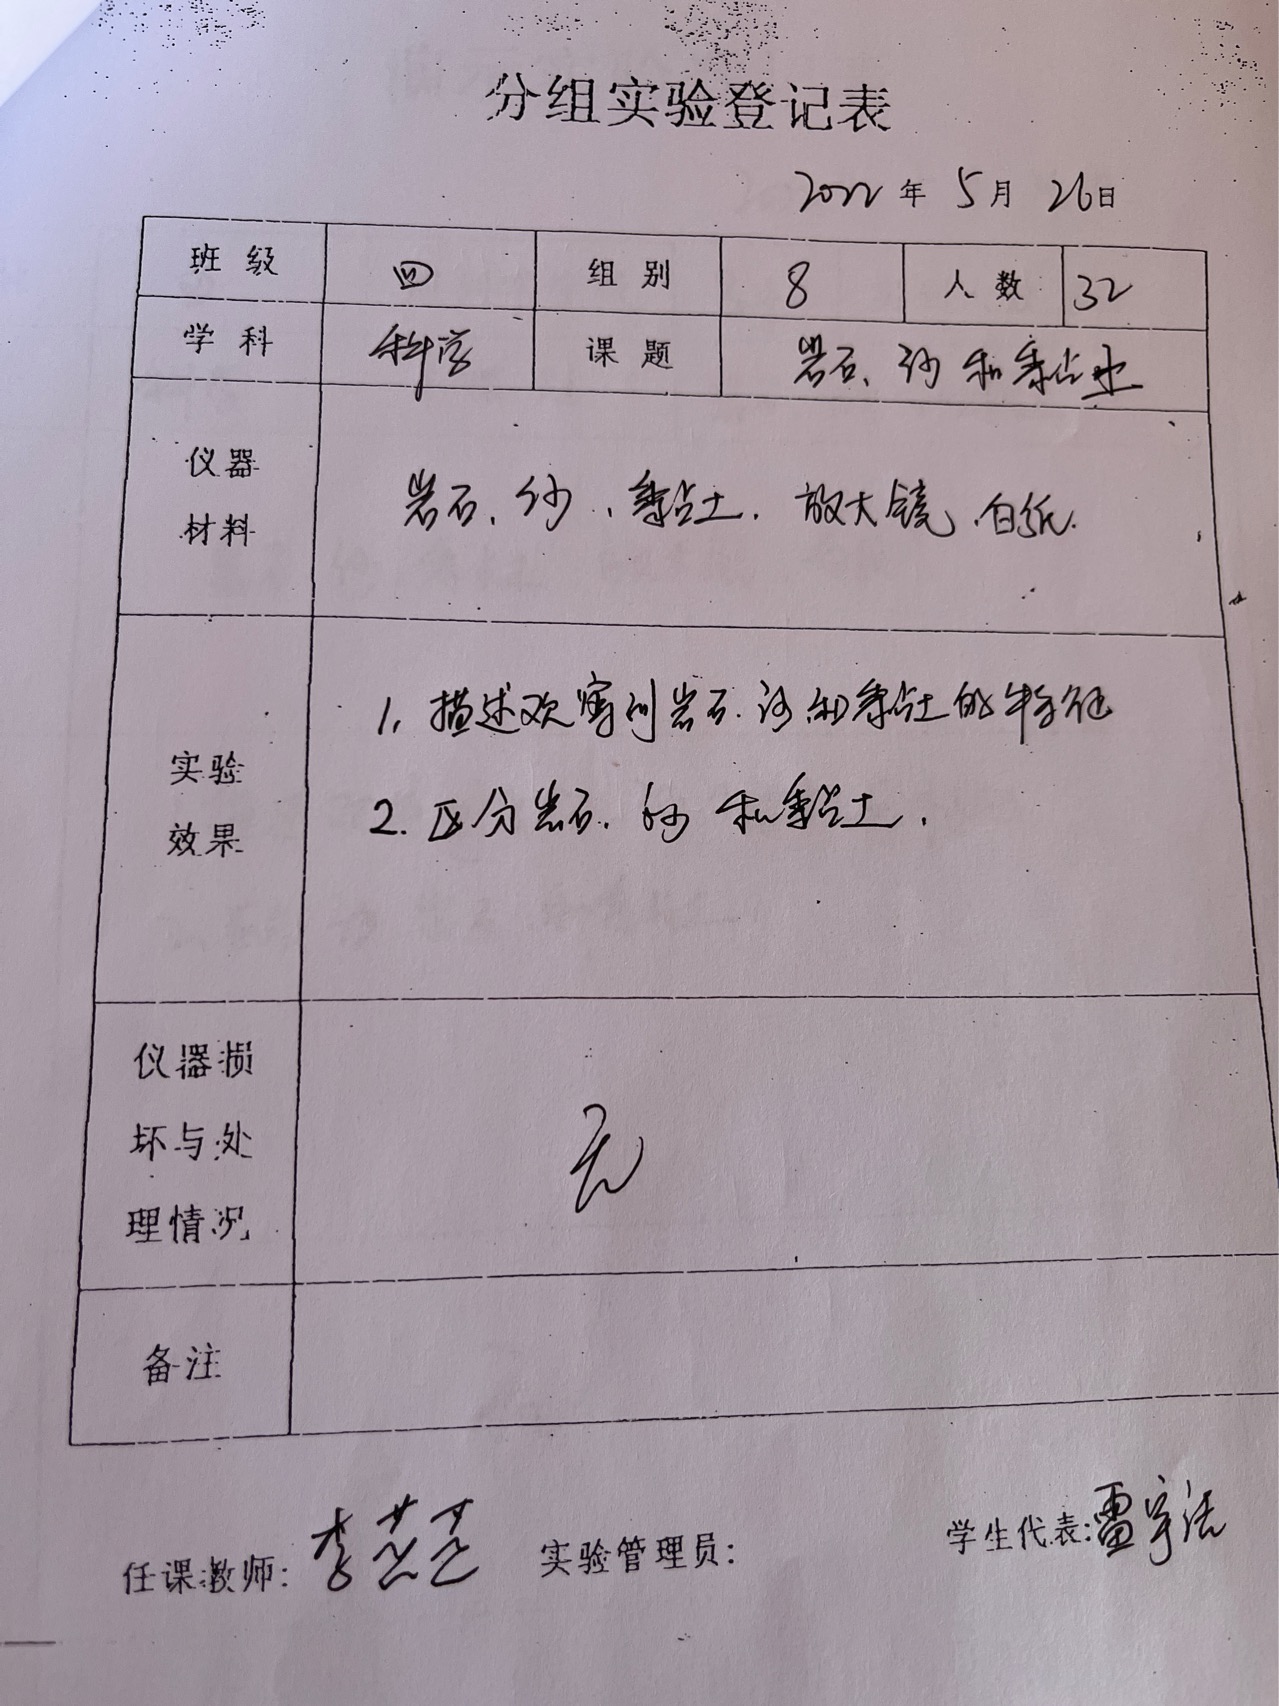 分组实验登记表
2022年5月26日
班级 四 组别 8 人数 32
学科 科学 课题 岩石、沙和黏土
仪器
材料
岩石、沙、黏土、放大镜、白纸.
实验
效果
1. 描述观察到岩石、沙和黏土的特征
2. 区分岩石、沙和黏土.
仪器损
坏与处
理情况
无
备注
任课教师: 李芸芸 实验管理员: 学生代表: 雷宇